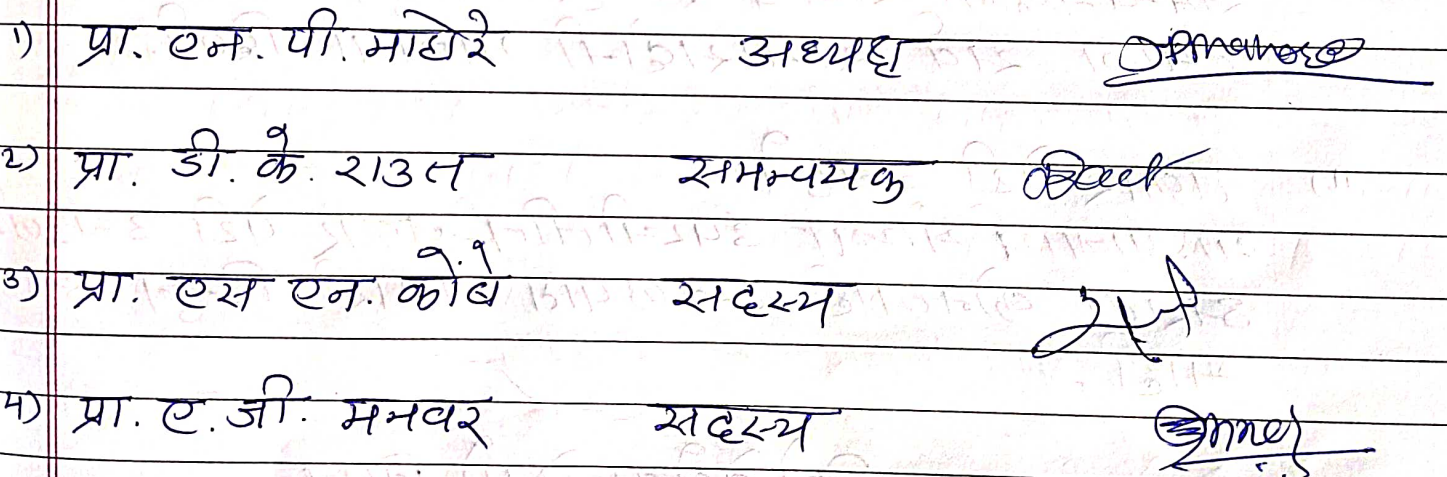 १) प्रा. एन. पी. माहोरे अध्यक्ष
२) प्रा. डी. के. राउत समन्वयक
३) प्रा. एस एन. कोंबे सदस्य
४) प्रा. ए. जी. मनवर सदस्य